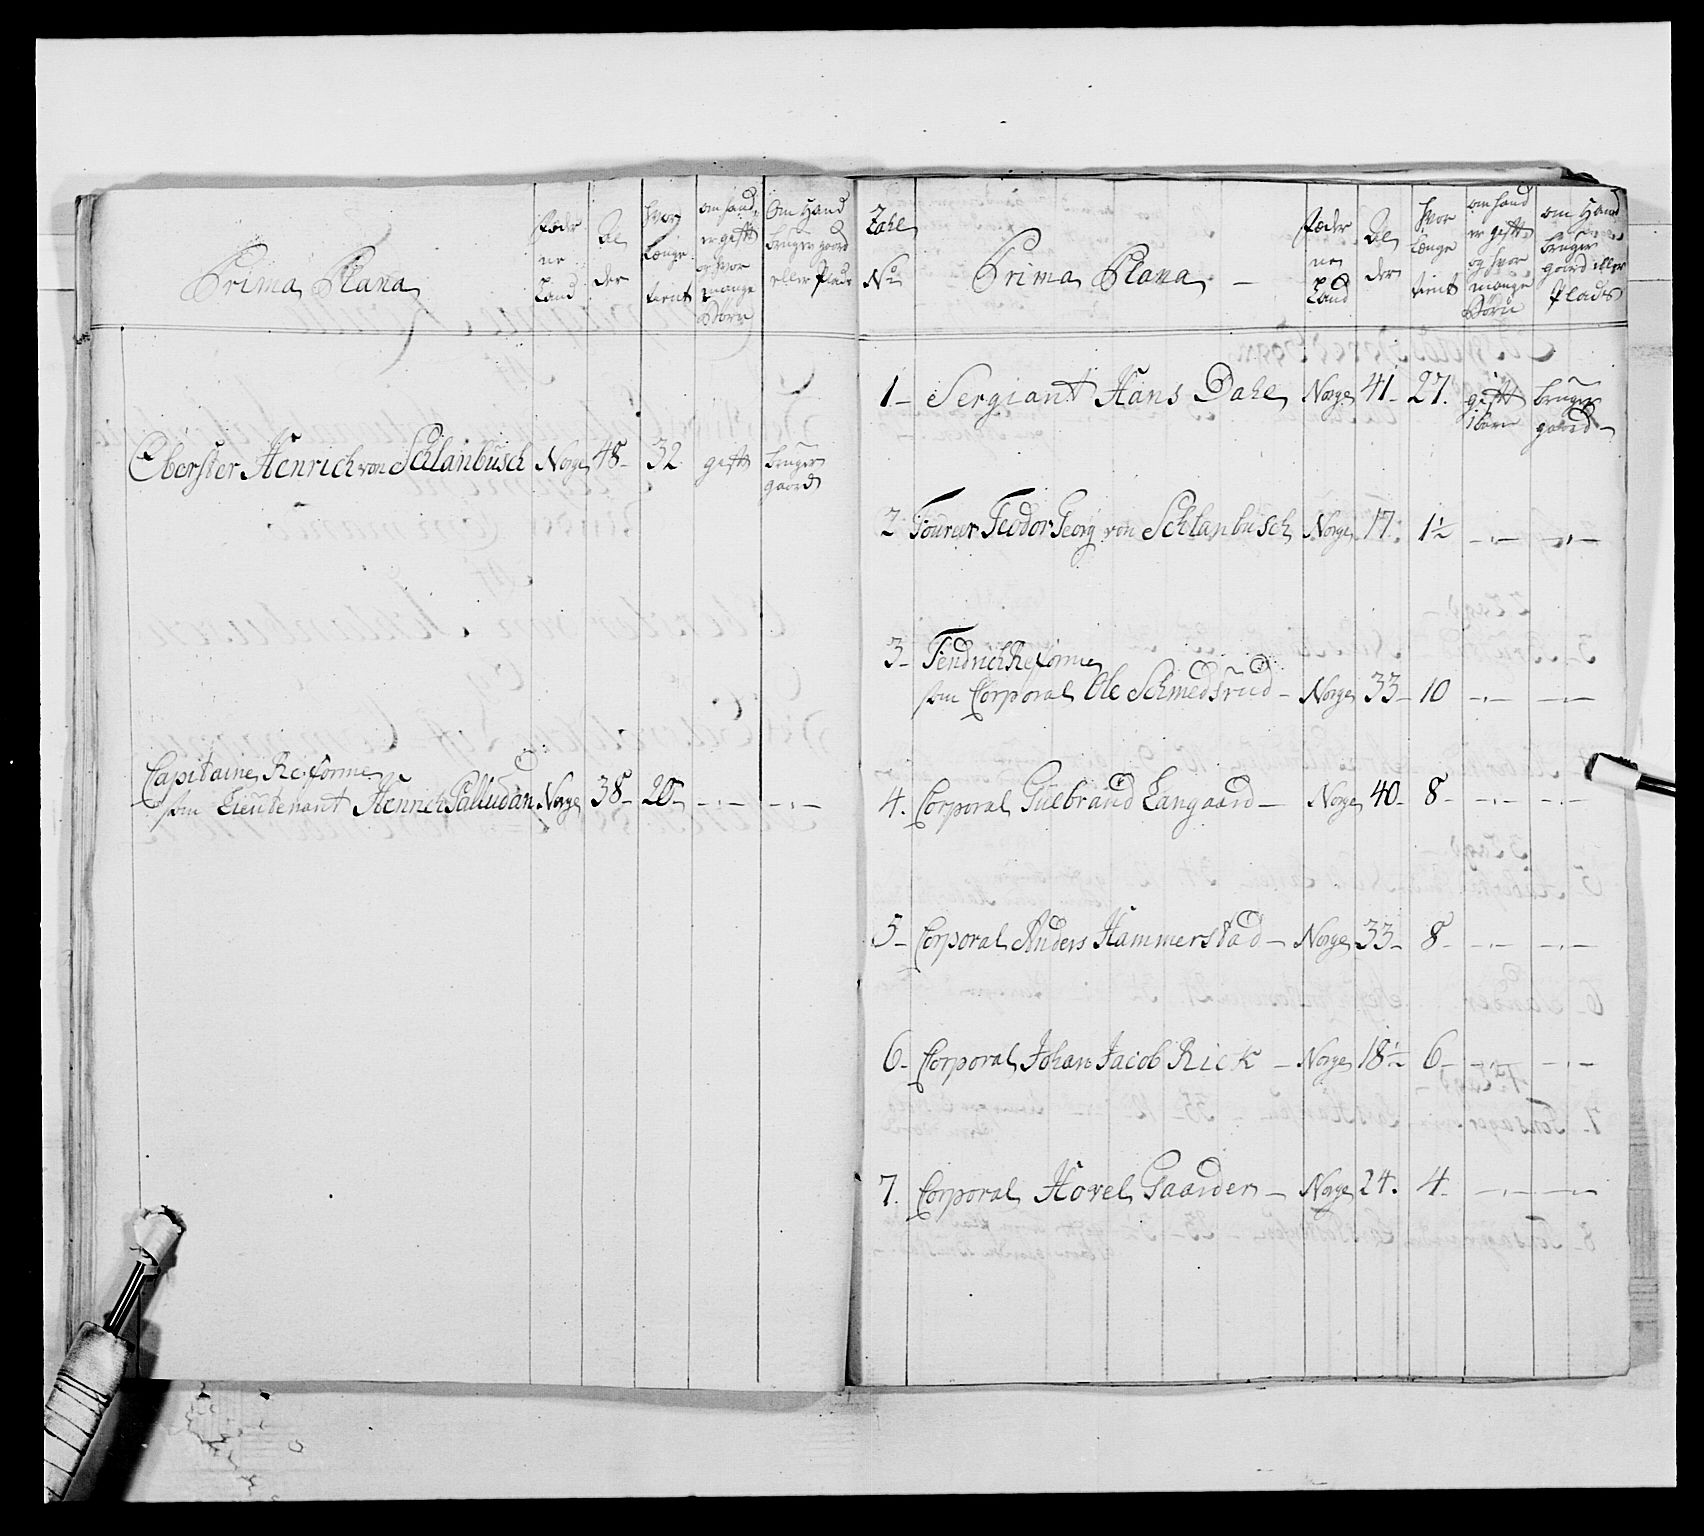 Prima Plana
Føde
ne
Land
Al
der
hvor
længe
tient
om hand
er gift
og hvor
mange
Børn
Om Hand
bruger gaard
eller Plads
Oberster Henrich von Schlanbusch Norge 48- 32 gift bruger
gaard
Capitaine Reforme
som Lieutenant Henrich Palludan Norge 38- 20- -,- -,-
Zahl
No
Prima Plana -
Føde
ne
Land
Al
der
hvor
længe
tient
om hand
er gift
og hvor
mange
Børn
om Hand
bruger
gaard eller
Plads
1- Sergiant Hans Dahl Norge 41- 27. gift bruger
1 barn gaard-
2 Fourer Feodor Georg von Schlanbusch Norge 17. 1½ -,- -,-
3- Fendrich Reforme
som Corporal Ole Schmedsrud- Norge 33- 10 -,- -,-
4. Corporal Gulbrand Langaard- Norge 40- 8- -,- -,-
5- Corporal Anders Hammerstad- Norge 33- 8- -,- -,-
6- Corporal Johan Jacob Rick - Norge 18½ 6- -,- -,-
7. Corporal Hovel Gaarder- Norge 24. 4- -,- -,-